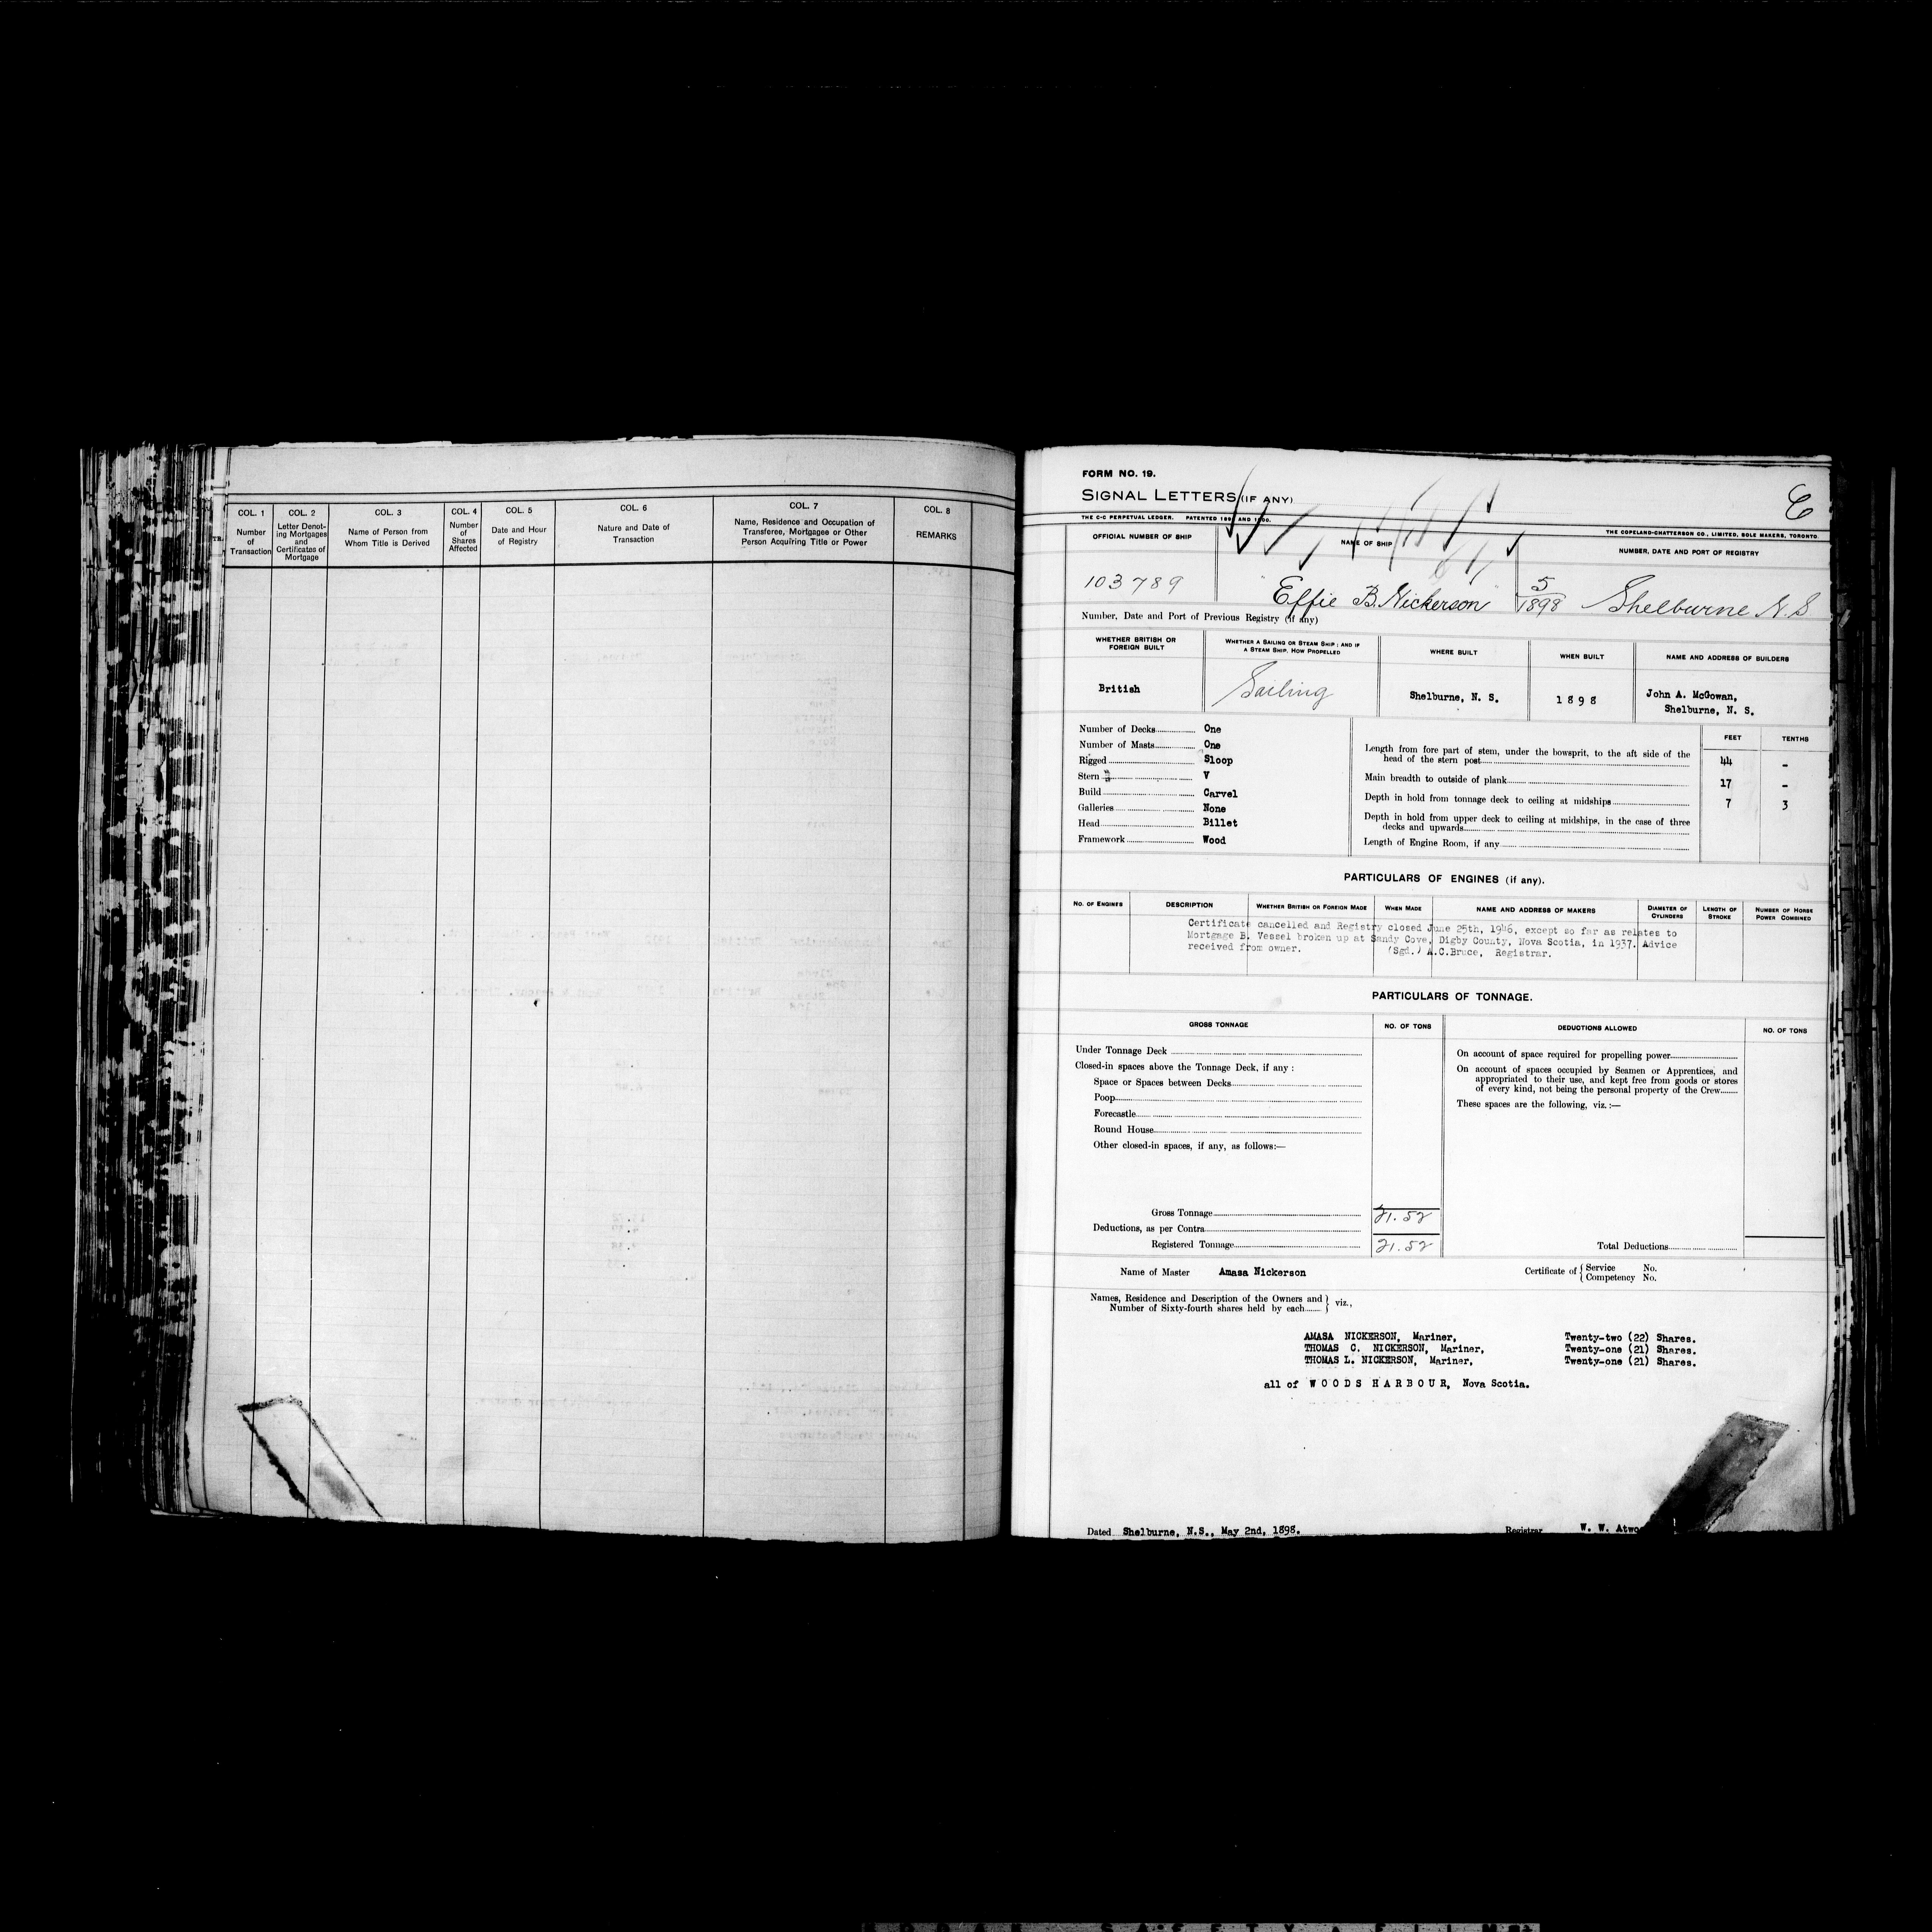 COL. 1
Number
of
Transaction
COL. 2
Letter Denot-
ing Mortgages
and
Certificates of
Mortgage
COL. 3
Name of Person from
Whom Title is Derived
COL. 4
Number
of
Shares
Affected
COL. 5
Date and Hour
of Registry
COL. 6
Nature and Date of
Transaction
COL. 7
Name, Residence and Occupation of
Transferee, Mortgagee or Other
Person Acquiring Title or Power
COL. 8
REMARKS
FORM NO. 19.
SIGNAL LETTERS (IF ANY)
E
THE C-C PERPETUAL LEDGER. PATENTED AND
THE COPELAND-CHATTERSON CO., LIMITED, SOLE MAKERS, TORONTO.
OFFICIAL NUMBER OF SHIP
NAME OF SHIP
NUMBER, DATE AND PORT OF REGISTRY
103789
"Effie B. Nickerson"
5/1898 Shelburne N.S
Number, Date and Port of Previous Registry (if any)
WHETHER BRITISH OR
FOREIGN BUILT
WHETHER A SAILING OR STEAM SHIP; AND IF
A STEAM SHIP, HOW PROPELLED
WHERE BUILT
WHEN BUILT
NAME AND ADDRESS OF BUILDERS
British
Sailing
Shelburne, N. S.
1898
John A. McGowan,
Shelburne, N. S.
Number of Decks One
Number of Masts One
Rigged Sloop
Stern V
Build Carvel
Galleries None
Head Billet
Framework Wood
FEET TENTHS
Length from fore part of stem, under the bowsprit, to the aft side of the
head of the stern post 44 -
Main breadth to outside of plank 17 -
Depth in hold from tonnage deck to ceiling at midships 7 3
Depth in hold from upper deck to ceiling at midships, in the case of three
decks and upwards
Length of Engine Room, if any
PARTICULARS OF ENGINES (if any).
NO. OF ENGINES
DESCRIPTION
WHETHER BRITISH OR FOREIGN MADE
WHEN MADE
NAME AND ADDRESS OF MAKERS
DIAMETER OF
CYLINDERS
LENGTH OF
STROKE
NUMBER OF HORSE
POWER COMBINED
Certificate cancelled and Registry closed June 25th, 1946, except so far as relates to
Mortgage B. Vessel broken up at Sandy Cove, Digby County, Nova Scotia, in 1937. Advice
received from owner. (Sgd.) A.C.Bruce, Registrar.
PARTICULARS OF TONNAGE.
GROSS TONNAGE
NO. OF TONS
DEDUCTIONS ALLOWED
NO. OF TONS
Under Tonnage Deck
Closed-in spaces above the Tonnage Deck, if any :
Space or Spaces between Decks
Poop
Forecastle
Round House
Other closed-in spaces, if any, as follows:—
Gross Tonnage 21.52
Deductions, as per Contra
Registered Tonnage 21.52
On account of space required for propelling power
On account of spaces occupied by Seamen or Apprentices, and
appropriated to their use, and kept free from goods or stores
of every kind, not being the personal property of the Crew
These spaces are the following, viz.:—
Total Deductions
Name of Master Amasa Nickerson
Certificate of { Service No.
Competency No.
Names, Residence and Description of the Owners and
Number of Sixty-fourth shares held by each } viz.,
AMASA NICKERSON, Mariner, Twenty-two (22) Shares.
THOMAS C. NICKERSON, Mariner, Twenty-one (21) Shares.
THOMAS L. NICKERSON, Mariner, Twenty-one (21) Shares.
all of WOODS HARBOUR, Nova Scotia.
Dated Shelburne, N.S., May 2nd, 1898.
Registrar W. W.